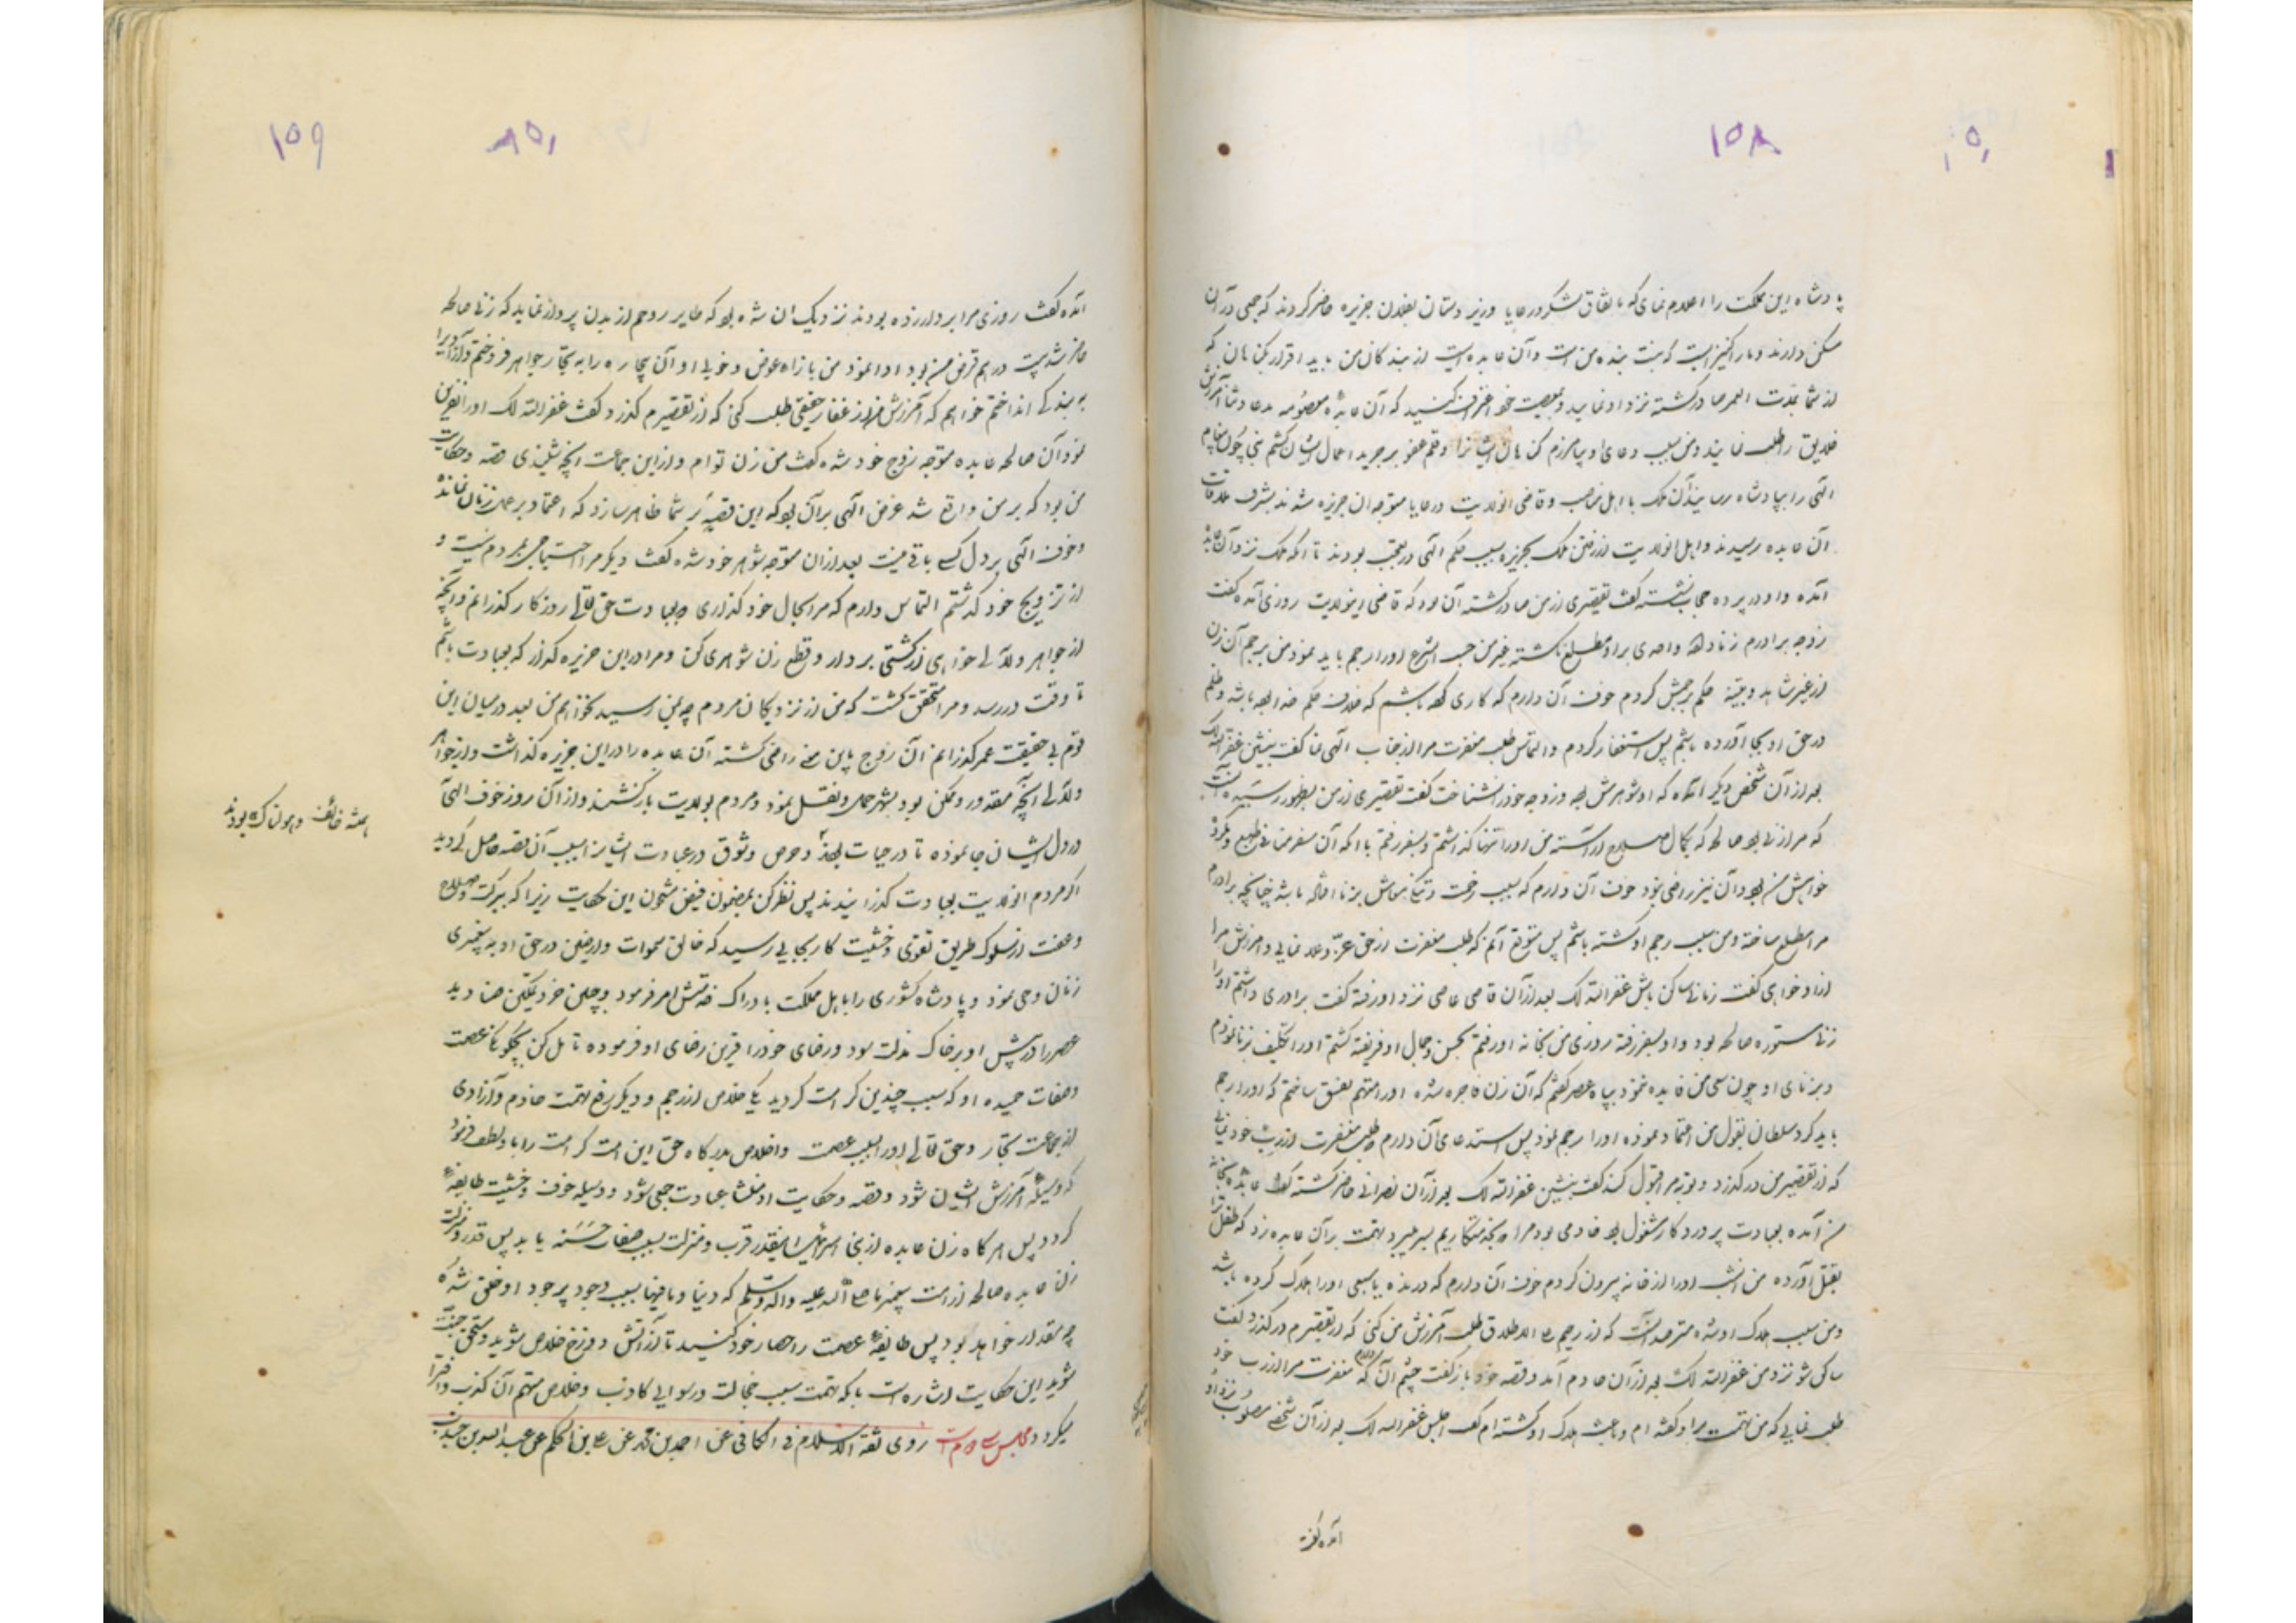 ۱۵۸
پادشاه این مملکت را اعلام نمای که باتفاق لشکر و رعایا و زیردستان بفلان جزیره حاضر کردند که جمعی در آن
مسکن دارند و مار کنیز است که بنت بنده من است و آن عابده است از بندکان من باید اقرار بکناهان که
از شما بمدت العمر صادر کشته نزد او نمایید و بمعصیت خود اعتراف کنید که آن عابده معصومه بدعا و شما آمرزش
خلایق را طلب نمایند و من بسبب دعای او بیامرزم کناهان ایشان را و قلم عفو بر جریده اعمال ایشان کشم نبی چون پیغام
الهی را بپادشاه رسانید آن ملک با اهل مناصب و قاضی آنولایت و رعایا متوجه آن جزیره شدند بشرف ملاقات
آن عابده رسیدند و اهل آنولایت از رفتن ملک بجزیره بسبب حکم الهی در تعجب بودند تا آنکه ملک نزد آن عابده
آمده و او در پرده حجاب نشسته گفت تقصیری از من صادر کشته آن بود که قاضی اینولایت روزی آمده گفت
زوجه برادرم زنا داده واحدی بر او مطلع نکشته غیر من حسب الشرع او را رجم باید نمود من برجم آن زن
از غیر شاهد و بینه حکم برجمش کردم خوف آن دارم که کاری کرده باشم که خلاف حکم خدا بوده باشد و ظلم
در حق او بجا آورده باشم پس استغفار کردم و التماس طلب مغفرت مرا از جناب الهی نما گفت بنشین غفر الله لک
بعد از آن شخص دیگر آمده که او شوهرش بود و زوجه خود را نشناخت گفت تقصیری از من بظهور رسیده آنست
که مرا زنی بود صالحه که بکمال صلاح آراسته من او را تنها گذاشتم و بسفر رفتم با آنکه آن سفر منافی طبع و بدون
خواهش من بود و آن نیز راضی نبود خوف آن دارم که بسبب رخت و تنکی معاش بزنا افتاده باشد چنانچه برادرم
مرا مطلع ساخته و من سبب رجم او کشته باشم پس متوقع آنم که طلب مغفرت از حق عز و علا نمایی و آمرزش مرا
از او خواهی گفت زمانی ساکن باش غفر الله لک بعد از آن قاضی عاصی نزد او رفته گفت برادری داشتم او را
زنی مستوره صالحه بود و او بسفر رفته روزی من بخانه او رفتم بحسن و جمال او فریفته کشتم او را تکلیف بزنا نمودم
و بزنای او چون سعی من فایده ننمود بپادشاه عصر گفتم که آن زن فاجره شده او را متهم بفسق ساختم که او را رجم
باید کرد سلطان بقول من اعتماد نموده او را رجم نمود پس استدعای آن دارم که طلب مغفرت از رب خود نمایی
که از تقصیر من درگذرد و توبه مرا قبول کند گفت بنشین غفر الله لک بعد از آن نصرانی حاضر کشته گفت عابده بخانه
من آمده بعبادت پروردکار مشغول بود خادمی بود مرا که بخدمتکاریم بسر میبرد تهمت بر آن عابده زد که طفل ترا
بقتل آورده من از شب او را از خانه بیرون کردم خوف آن دارم که درنده یا سبعی او را هلاک کرده باشد
و من سبب هلاک او شده مترصد آنست که از رحیم علی الاطلاق طلب آمرزش من کنی که از تقصیرم درگذرد گفت
ساکن شو نزد من غفر الله لک بعد از آن خادم آمد و قصه خود باز گفت چشم آن دارم که مغفرت مرا از رب خود
طلب نمایی که من تهمت بر او گفته‌ام و باعث هلاک او کشته‌ام گفت اجلس غفر الله لک بعد از آن شخصی مصلوب نزد او
آمده گفت
۱۵۹
آمده گفت روزی مرا بر دار زده بودند نزدیک آن شده بود که طایر روحم از بدن پرواز نماید که زنی صالحه
حاضر شد بیست درهم قرض من بود ادا نمود من بازاء عوض و خوبی او آن بیچاره را به تجار جواهر فروختم و آزاد را
به بندکی انداختم خواهم که آمرزش مرا از غفار حقیقی طلب کنی که از تقصیرم گذرد گفت غفر الله لک او را نفرین
نمود آن صالحه عابده متوجه زوج خود شده گفت من زن توام و از این جماعت آنچه شنیدی قصه و حکایت
من بود که بر من واقع شد غرض الهی بر آن بود که این قصه بر شما ظاهر سازد که اعتماد بر عمل زنان نمانده
و خوف الهی بر دل کسی باقی نیست بعد از آن متوجه شوهر خود شده گفت دیگر مرا احتیاجی بمردم نیست و
از تزویج خود گذشتم التماس دارم که مرا بحال خود گذاری و بعبادت حق تعالی روزگار گذرانم و آنچه
از جواهر و لآلی خواهی از کشتی بردار و قطع زن شوهری کن و مرا در این جزیره گذار که بعبادت باشم
تا وقت در رسد و مرا متحقق گشت که من از نزدیکان مردم چه بمن رسید نخواهم من بعد در میان این
قوم بی حقیقت عمر گذرانم آن زوج باین سخن راضی گشته آن عابده را در این جزیره گذاشت و از جواهر
و لآلی آنچه مقدور و ممکن بود بشهر حمل و نقل نمود و مردم بولایت بازگشتند و از آن روز خوف الهی
در دل ایشان جا نموده تا در حیات بودند و حرص و وثوق در عبادت ایشان را بسبب آن قصه حاصل گردید
همیشه خائف و هولناک بودند
اکثر مردم آنولایت بعبادت گذرانیدند پس نظر کن بمضمون فیض مشحون این حکایت زیرا که ببرکت صلاح
و عفت از سلوک طریق تقوی و خشیت کار بجایی رسید که خالق سموات و ارضین در حق او به پیغمبری
زمان وحی نمود و پادشاه کشوری را با اهل مملکت بادراک خدمتش امر فرمود و چنین خرد تمکین صنادید
عصر را در پیش او بر خاک مذلت سود و رضای خود را قرین رضای او فرموده تامل کن بچگونه عصمت
و صفات حمیده او که سبب چندین کرامت گردید یکی خلاص از رجم و دیگر رفع تهمت خادم و آزادی
از جماعت تجار و حق تعالی او را بسبب عصمت و اخلاص بدرگاه حق این امت کرامت را با او لطف فرمود
که وسیله آمرزش ایشان شود و قصه و حکایت او منشا عبادت جمعی شود و وسیله خوف و خشیت طایفه
گردد پس هر گاه زن عابده از بنی اسرائیل اینقدر قرب و منزلت بسبب صفات حسنه یابد پس قدر و منزلت
زن عابده صالحه از امت پیغمبر ما صلی الله علیه و اله و سلم که دنیا و مافیها بسبب وجود پرجود او خلق شده
چه مقدار خواهد بود پس طایفه عصمت را حصار خود کنید تا از آتش دوزخ خلاص شوید و مستحق جنت
شوید این حکایت اشاره است بآنکه تهمت سبب خجالت و رسوایی کاذب و خلاص متهم آن کذب و افترا
میگردد مجلس سی و دوم روی ثقة الاسلام فی الکافی عن احمد بن محمد عن علی بن الحکم عن عبدالله بن جندب